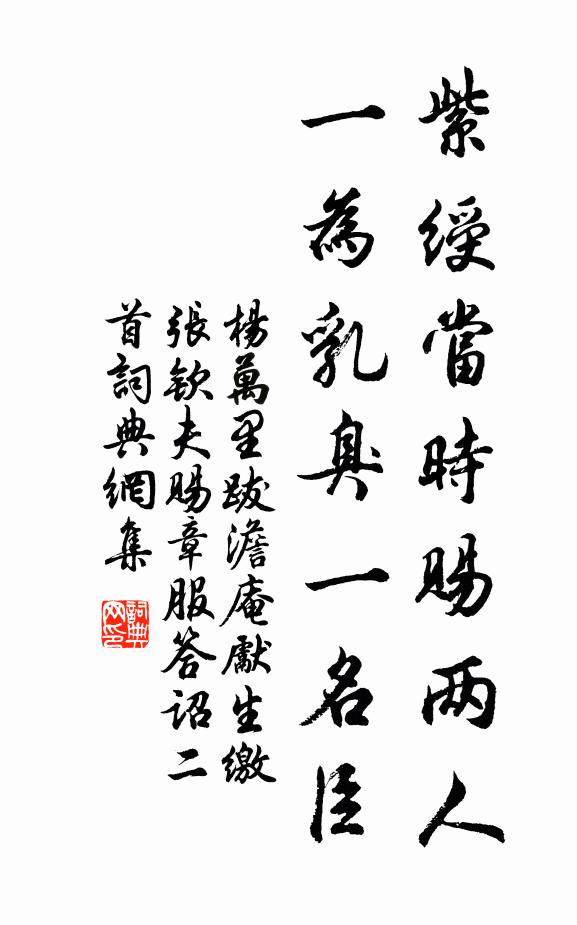 紫綬當時賜兩人
一為乳臭一名臣
楊萬里跋澹庵獻生繳
張欽夫賜章服答詔二
首詞典網集
詞典网印